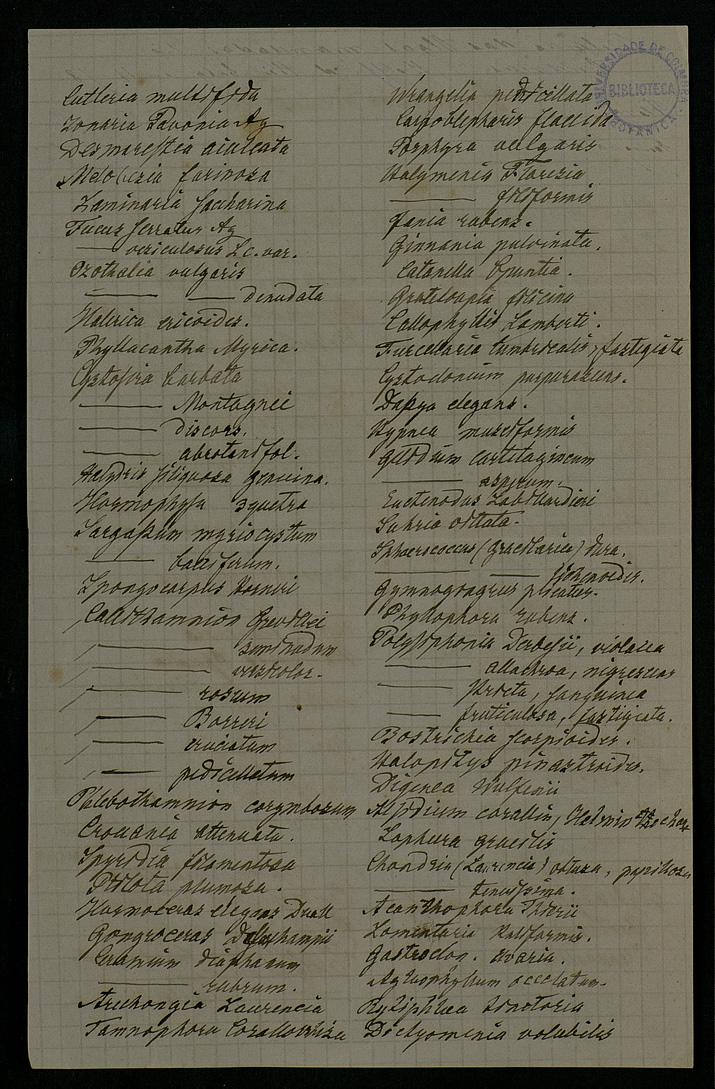 UNIVERSIDADE DE COIMBRA
BIBLIOTECA
BOTANICA
Cutleria multifida
Zonaria Pavonia Ag
Desmarestia aculeata
farinosa
Laminaria Saccharina
Fucus serratus Ag
—— vesiculosus Lc. var.
Ozothalia vulgaris
—— —— denudata
Halerica ericoides.
Phyllacantha Myrica.
Cystosira barbata
—— Montagnei
—— discors.
—— abrotanifol.
Halydris siliquosa genuina.
Hormophysa triquetra
Sargassum myriocystum
—— bacciferum.
Spongocarpus Horneri
Callithamnion Grevillei
—— seminudum
—— versicolor.
—— roseum
—— Borreri
—— cruciatum
—— pedicellatum
Phlebothamnion corymbosum
Crouania attenuata.
Spyridia filamentosa
Ptilota plumosa.
Hormoceras elegans
Gongroceras Deslongchampii
Ceramium diaphanum
—— rubrum.
Laurencia
Tamnophora Corallorhiza
Wrangelia pedicellata
flaccida
Porphyra vulgaris
Halymenia Floresia
—— filiformis
rubens.
Ginnania pulvinata.
Catanella Opuntia.
Grateloupia filicina
Callophyllis Lamberti.
Furcellaria lumbricalis, fastigiata
Cystoclonium purpurascens.
Dasya elegans.
Hypnea musciformis
Gelidium cartilagineum
—— asperum.
Euctenodus Labillardieri
Suhria vittata.
Sphaerococcus (Gracilaria) dura.
—— ——
Gymnogongrus plicatus.
Phyllophora rubens.
Polysiphonia Derbesii, violacea
—— allochroa, nigrescens
—— stricta, sanguinea
—— fruticulosa, fastigiata.
Bostrichia scorpioides.
Halopitys pinastroides.
Digenea Wulfenii
Alsidium corallin, Helmin
Lophura gracilis
Chondria (Laurencia) obtusa, papillosa
—— tenuissima.
Acanthophora Thierii
Lomentaria Kaliformis.
Gastroclon. Uvaria.
ocellatum.
Rytiphlaea tinctoria
Dictyomenia volubilis